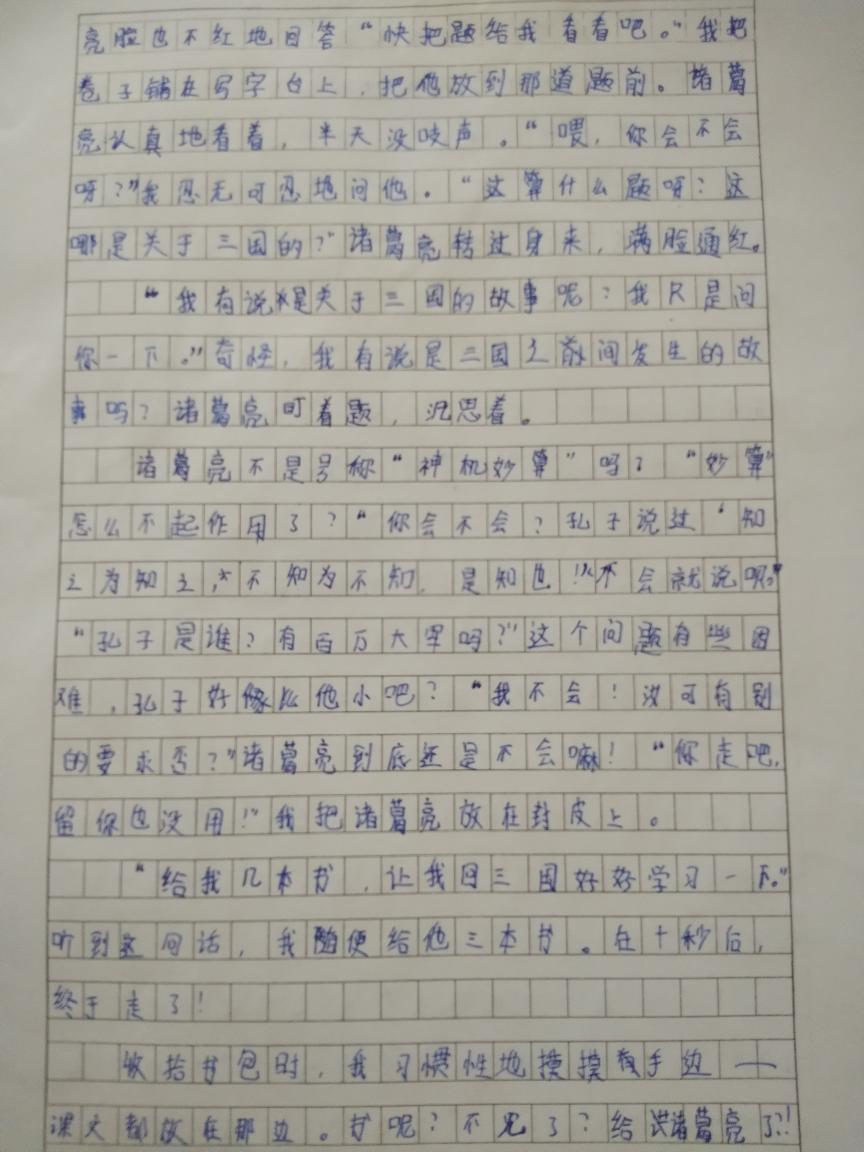 亮脸也不红地回答“快把题给我看看吧。”我把
卷子铺在写字台上，把他放到那道题前。诸葛
亮认真地看着，半天没吱声。“喂，你会不会
呀？”我忍无可忍地问他。“这算什么题呀？这
哪是关于三国的？”诸葛亮转过身来，满脸通红。
“我有说是关于三国的故事呢？我只是问
你一下。”奇怪，我有说是三国之前间发生的故
事吗？诸葛亮盯着题，沉思着。
诸葛亮不是号称“神机妙算”吗？“妙算”
怎么不起作用了？“你会不会？孔子说过‘知
之为知之，不知为不知，是知也！’不会就说呗。”
“孔子是谁？有百万大军吗？”这个问题有些困
难，孔子好像比他小吧？“我不会！汝可有别
的要求否？”诸葛亮到底还是不会嘛！“你走吧，
留你也没用！”我把诸葛亮放在封皮上。
“给我几本书，让我回三国好好学习一下。”
听到这句话，我随便给他三本书。在十秒后，
终于走了！
收拾书包时，我习惯性地摸摸手边——
课文都放在那边。书呢？不见了？给诸葛亮了？！